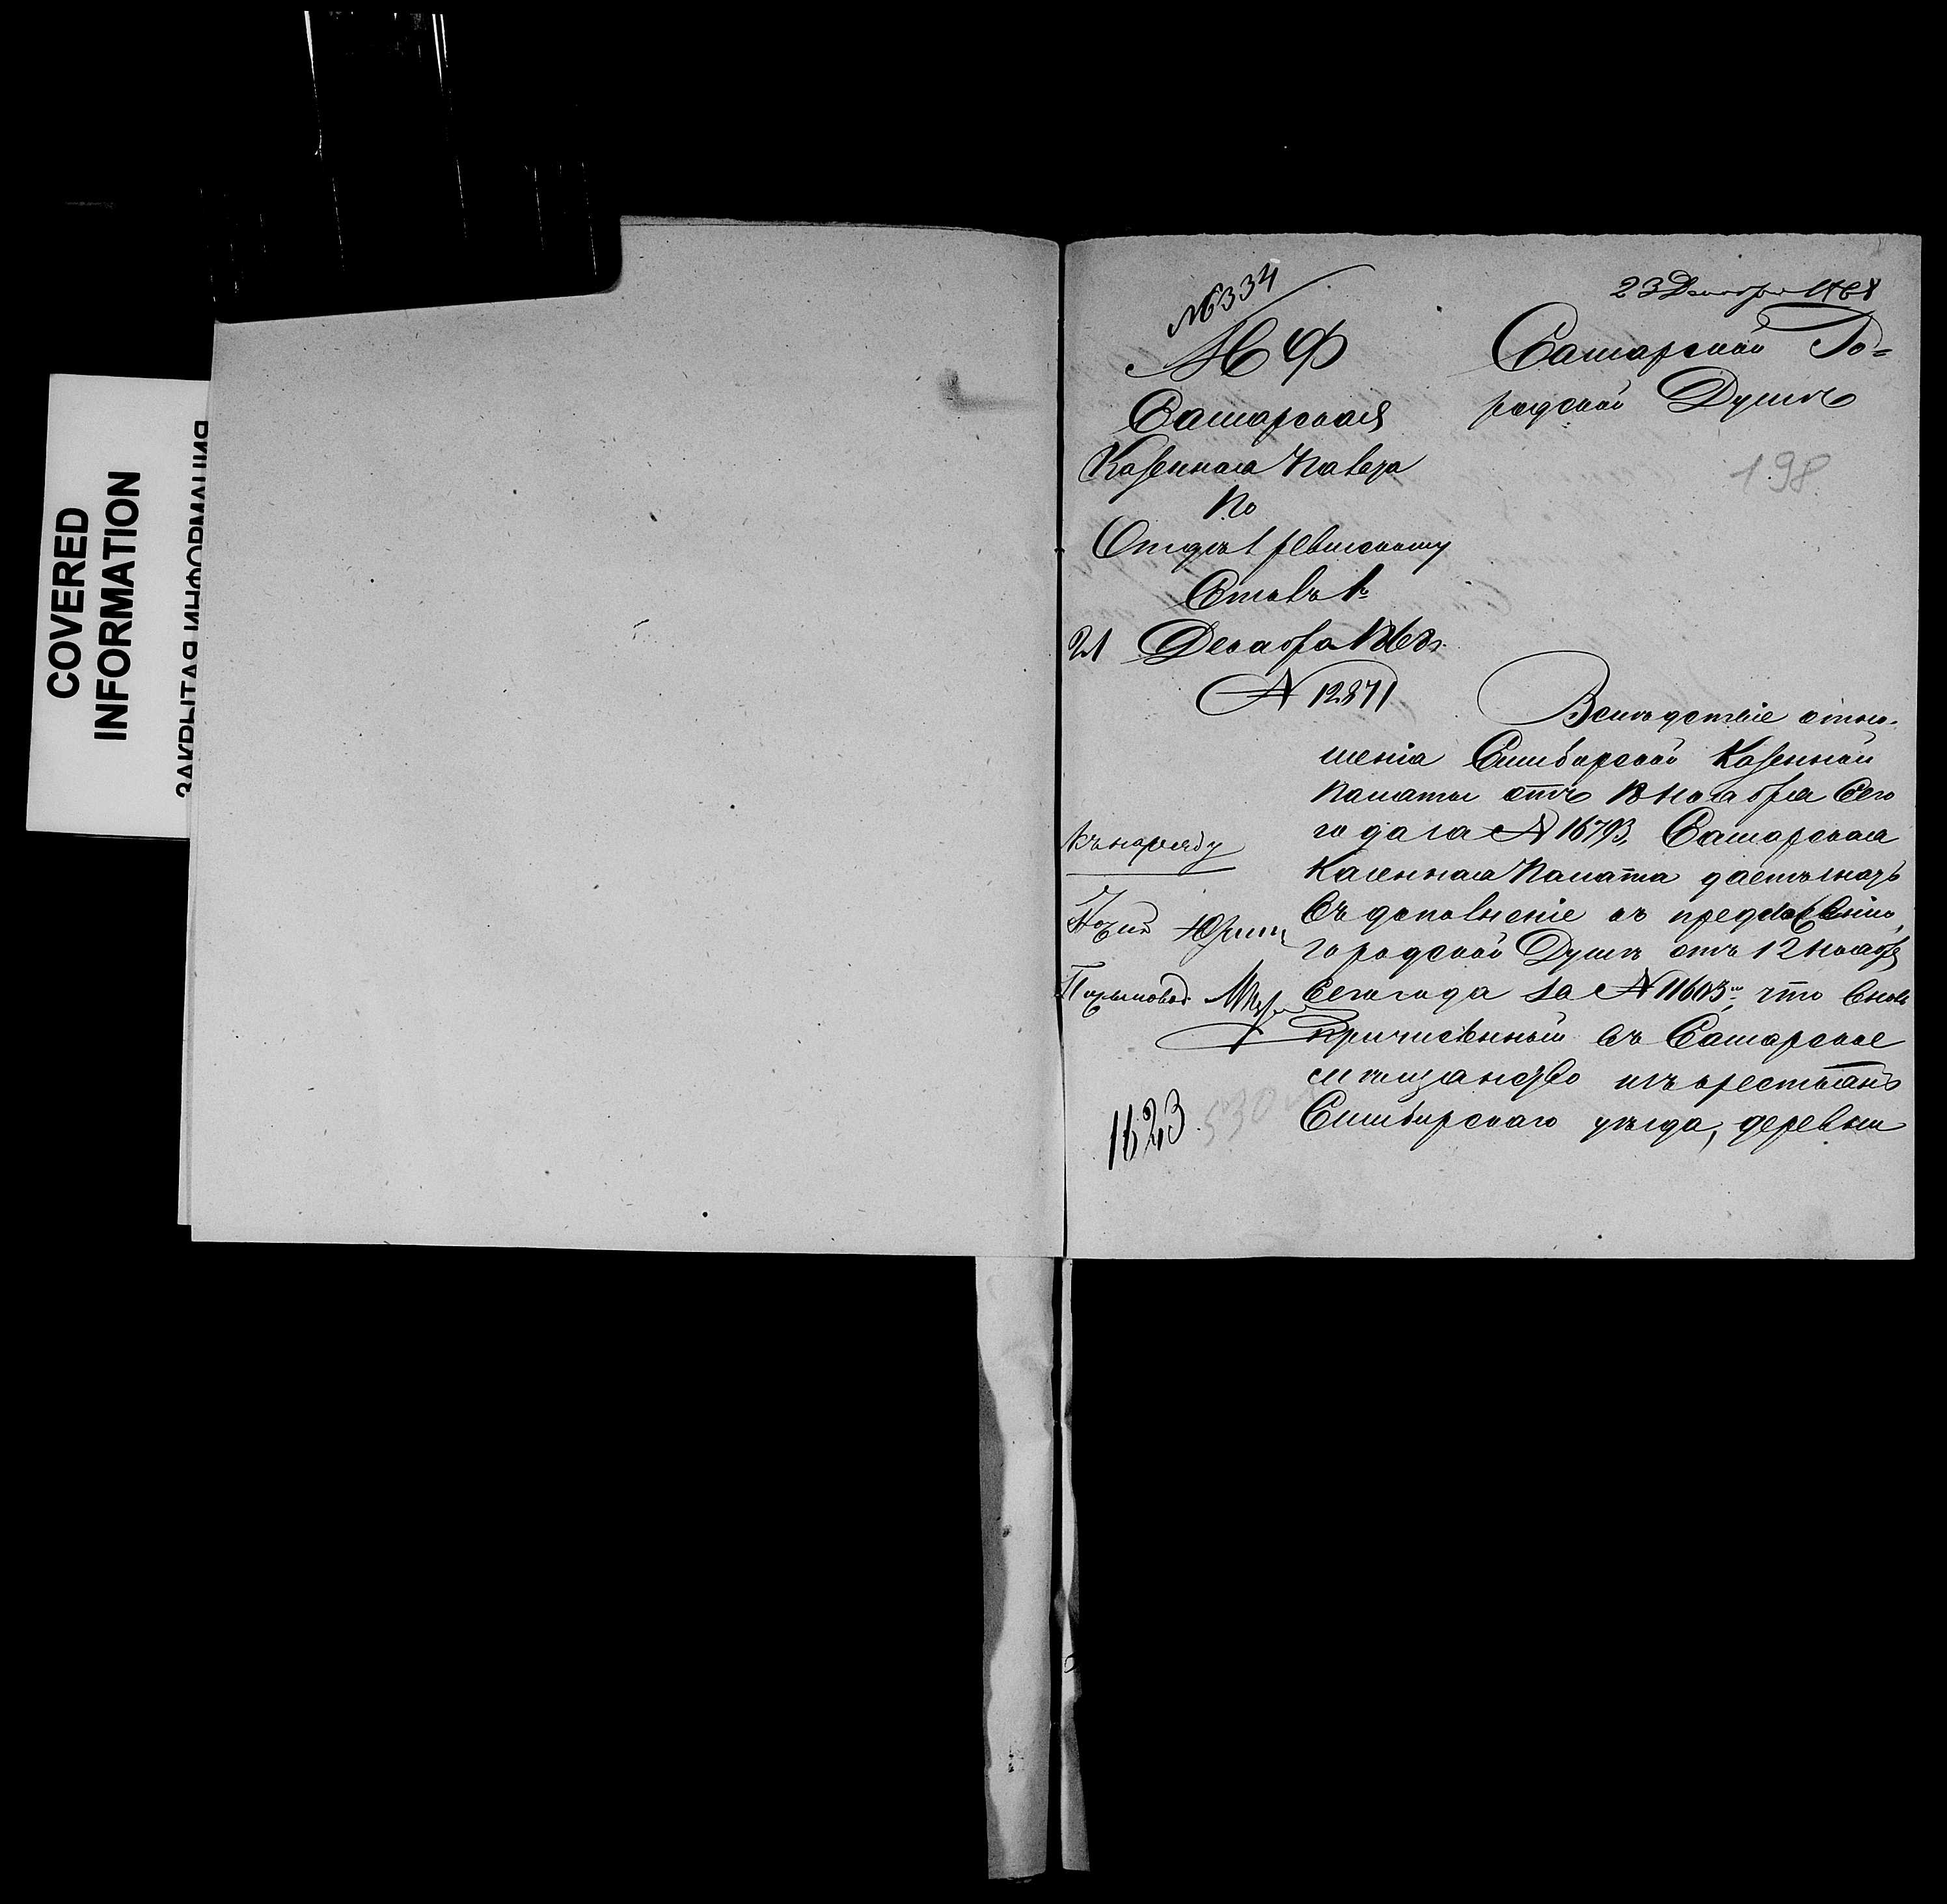 COVERED
INFORMATION
ЗАКРЫТАЯ ИНФОРМАЦИЯ
№334
М Ф
Самарская
Казенная Палата
По
Отдѣл ревизскому
Столъ 1й
21 Декабря 1868 г.
№ 12871
23 Декабря 1868
Самарской Го=
родской Думѣ
198
Вслѣдствіе отно-
шенія Симбирской Казенной
Палаты отъ ноября сего
года за № 16793, Самарская
Казенная Палата даетъ знать
въ дополненіе къ предписанію
городской Думѣ отъ 12 ноября
сего года за № 11603, что вновь
причисленный въ Самарское
мѣщанство изъ крестьянъ
Симбирскаго уѣзда, деревни
Къ наряду
1623
530